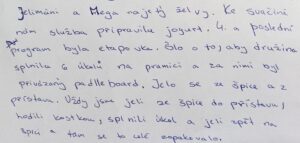 Jelimáni a Mega najetý želvy. Ke svačině
nám služba připravila jogurt. 4. a poslední
program byla etapovka. Šlo o to, aby družina
splnila 6 úkolů na pramici a za nimi byl
přivázaný paddleboard. Jelo se ze špice a z
přístavu. Vždy jsme jeli ze špice do přístavu,
hodili kostkou, splnili úkol a jeli zpět na
špici a tam se to celé zopakovalo.